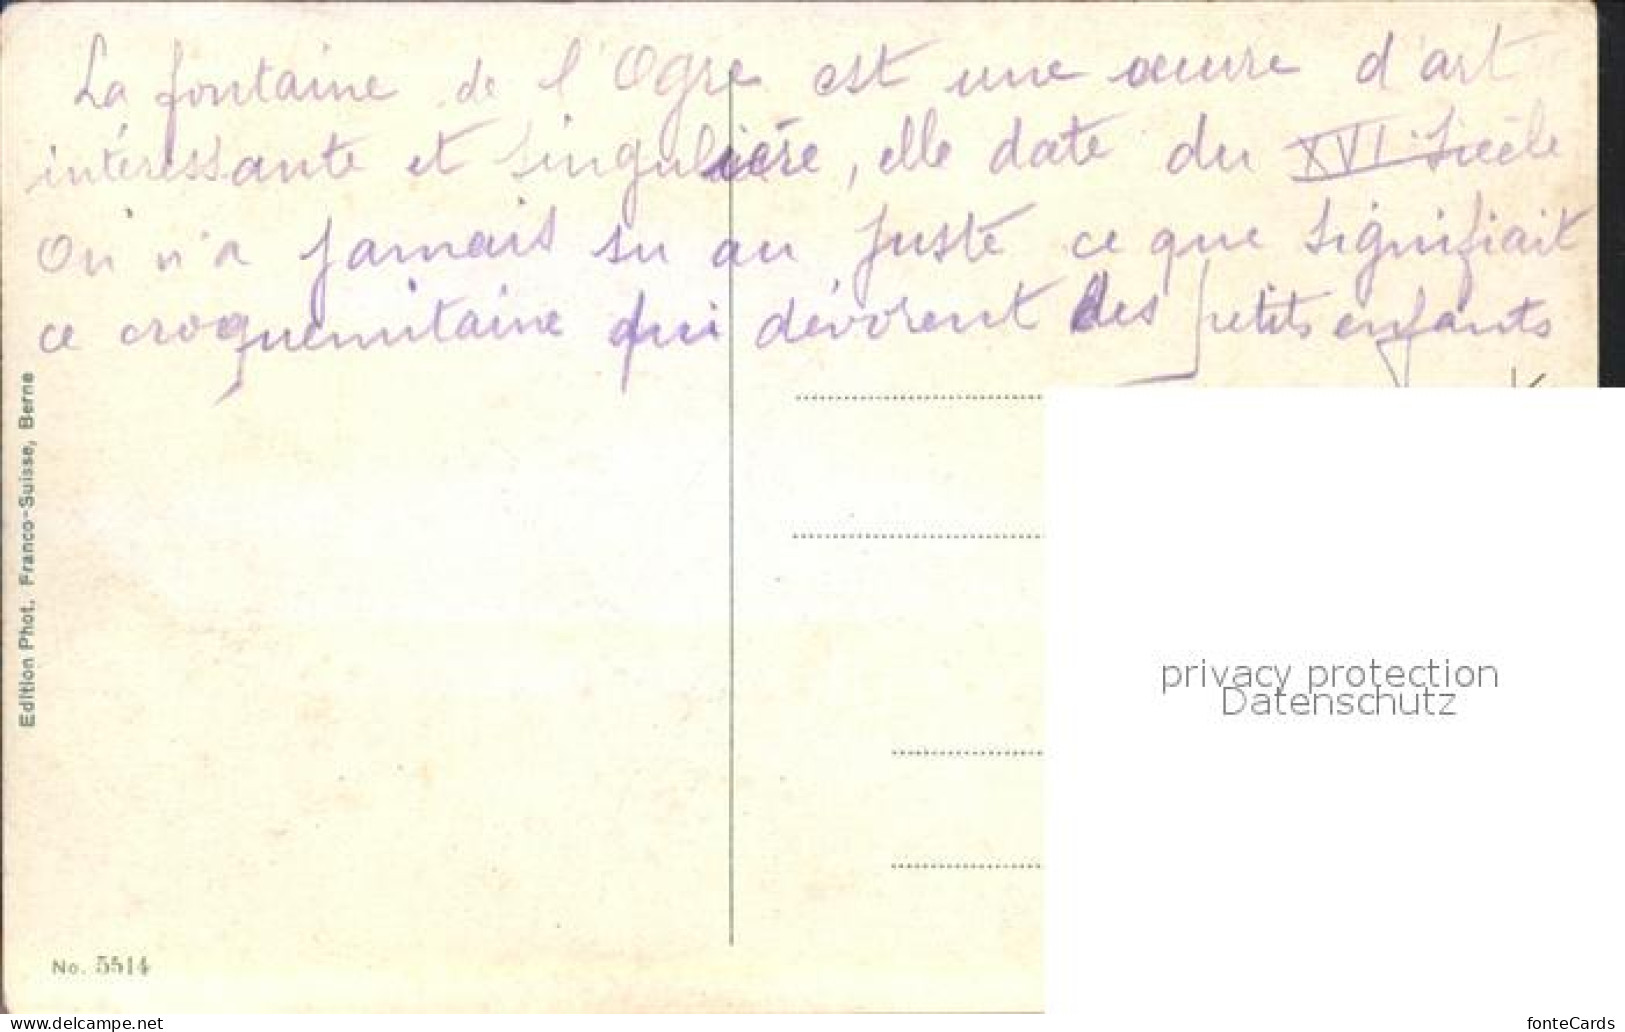 La fontaine de l'Ogre est une œuvre d'art
intéressante et singulière, elle date du XVI siècle
On n'a jamais su au juste ce que signifiait
ce croquemitaine qui dévorent des petits enfants
Edition Phot. Franco-Suisse, Berne
privacy protection
Datenschutz
No. 5514
www.delcampe.net
fonteCards